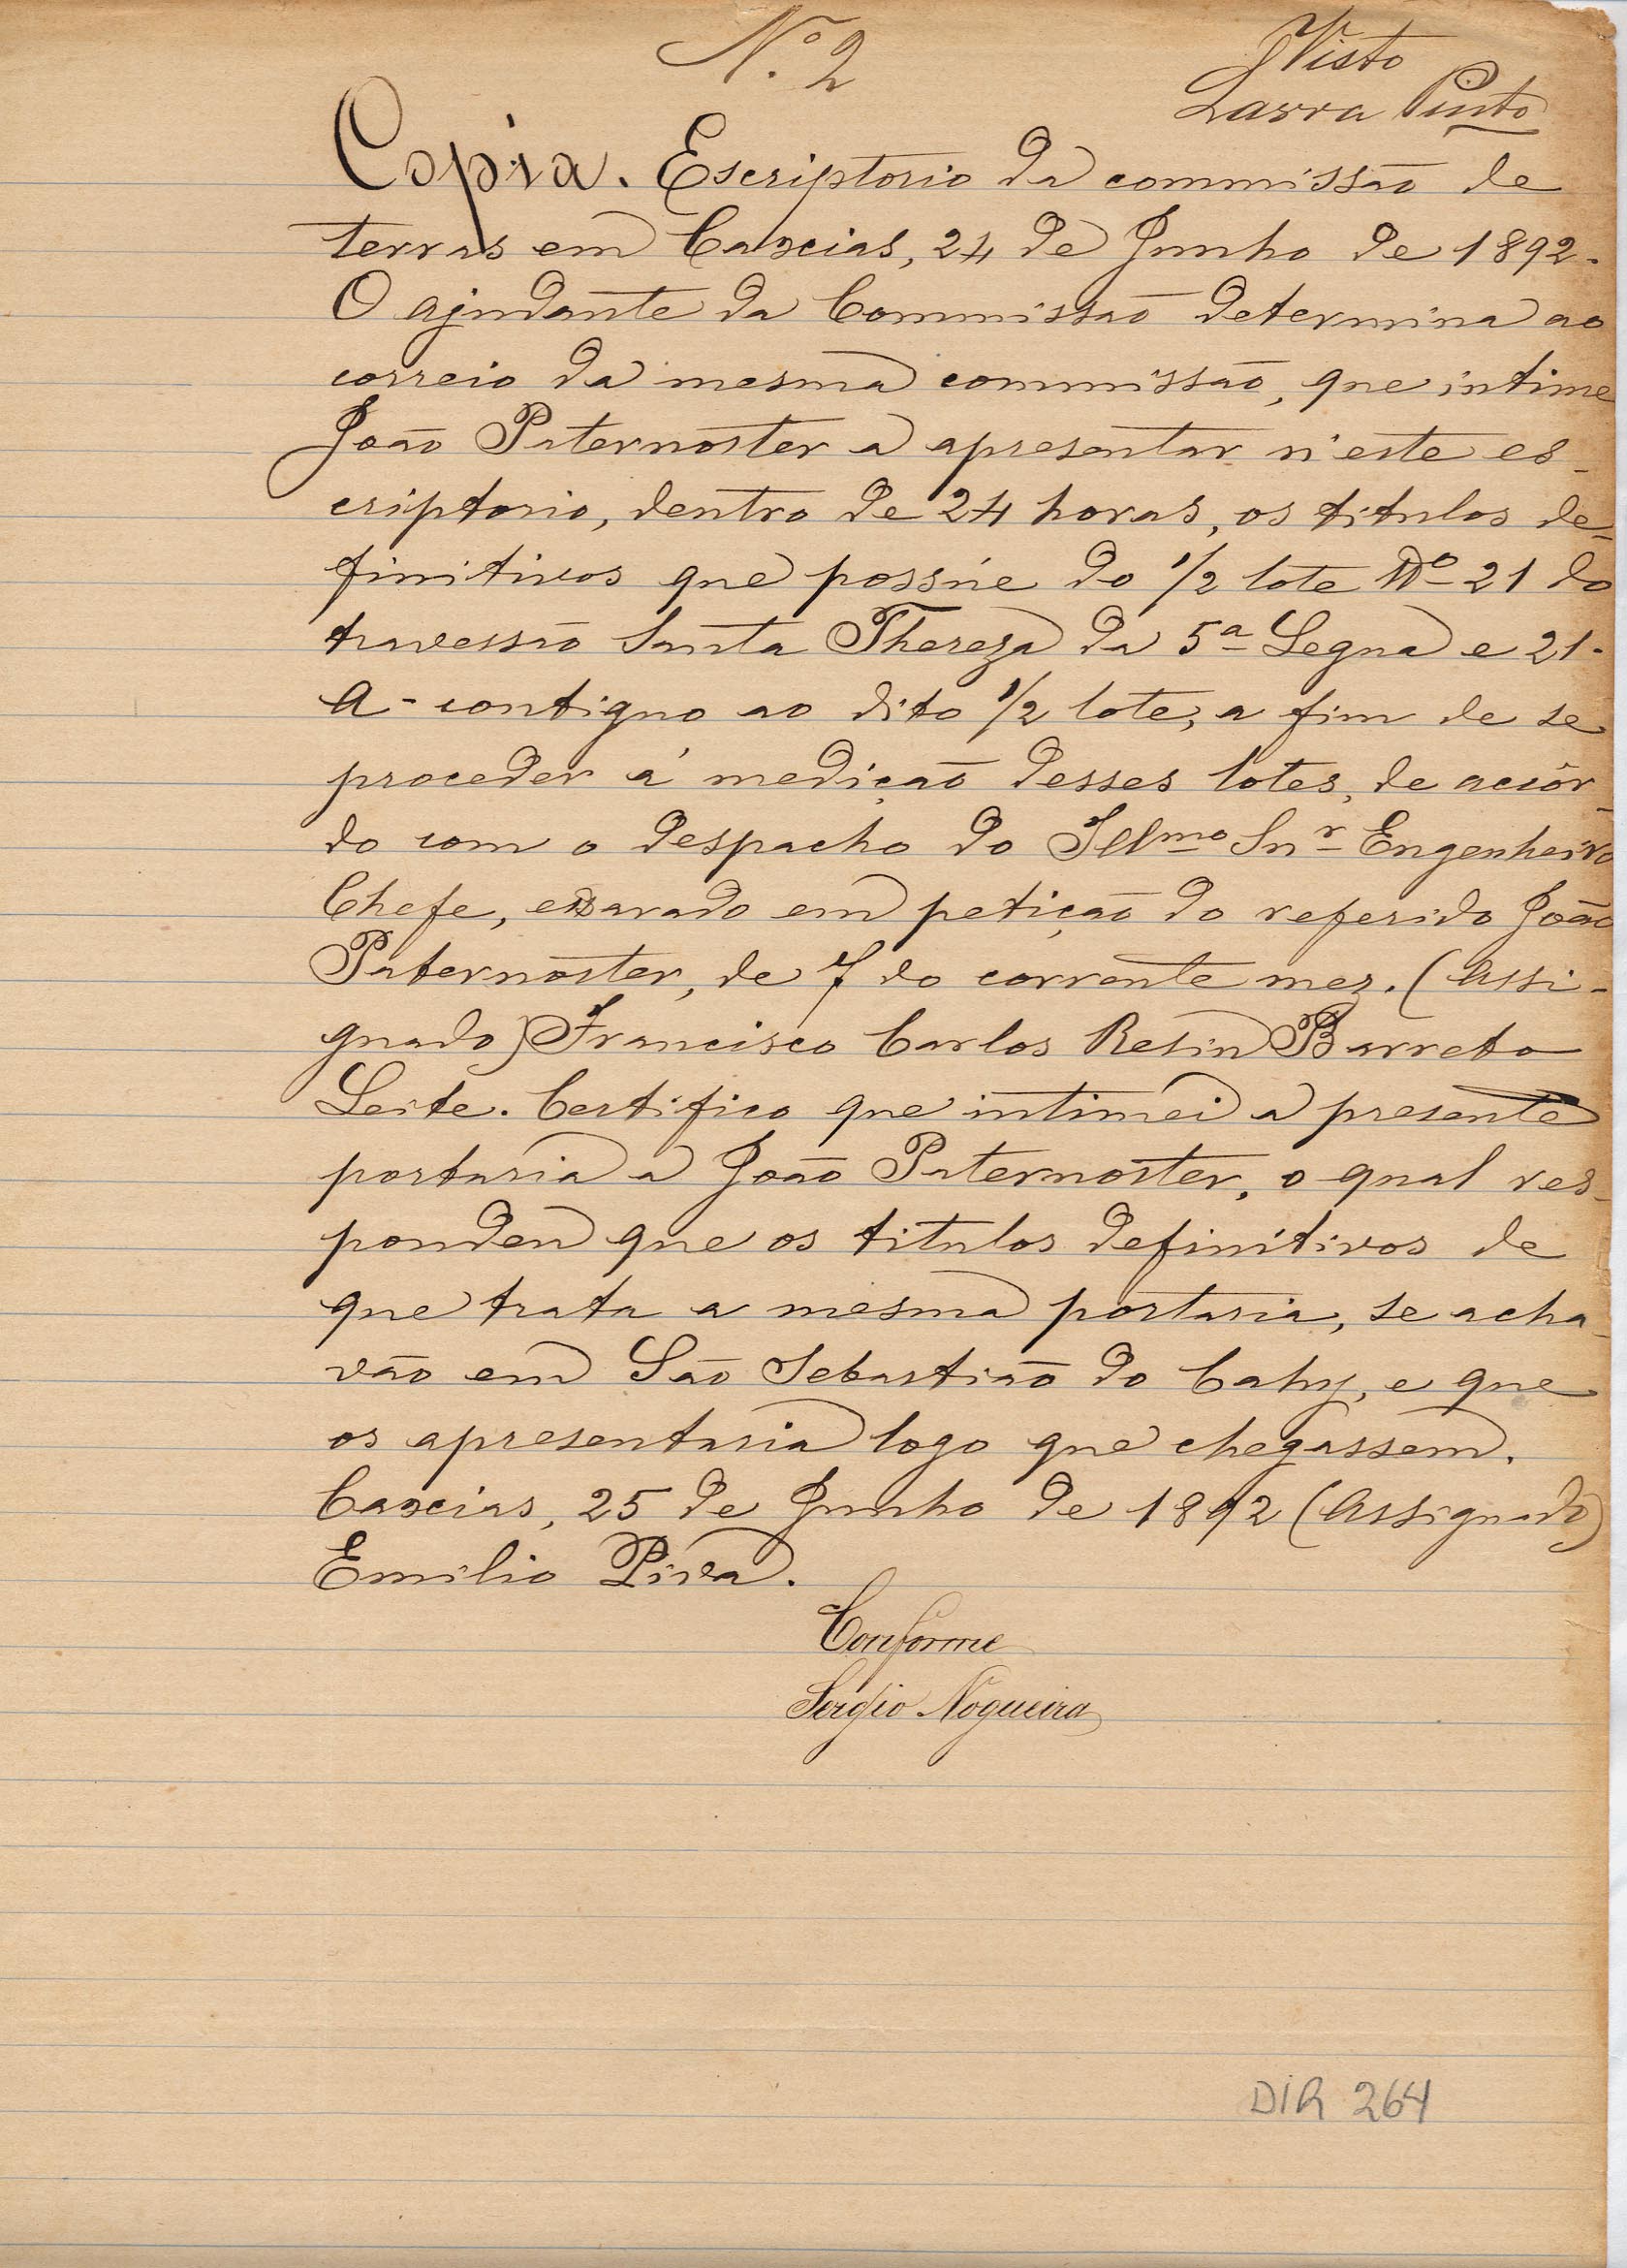 Nº 2
Visto
Lassa Pinto
Copia. Escriptorio da commissão de
terras em Caxias, 24 de Junho de 1892.
O ajudante da Commissão determina ao
correio da mesma commissão, que intime
João Paternoster a apresentar n'este es-
criptorio, dentro de 24 horas, os titulos de-
finitivos que possúe do 1/2 lote Nº 21 do
travessão Santa Thereza da 5ª Legua e 21-
A- contiguo ao dito 1/2 lote, a fim de se
proceder á medição desses lotes, de accôr-
do com o despacho do Illmo Snr Engenheiro
Chefe, exarado em petição do referido João
Paternoster, de 7 do corrente mez. (Assi-
gnado) Francisco Carlos Resin Barreto
Leite. Certifico que intimei a presente
portaria a João Paternoster, o qual res-
pondeu que os titulos definitivos de
que trata a mesma portaria, se acha-
vão em São Sebastião do Cahy, e que
os apresentaria logo que chegassem.
Caxias, 25 de Junho de 1892 (Assignado)
Emilio Piva.
Conforme
Sergio Nogueira
DIR 264